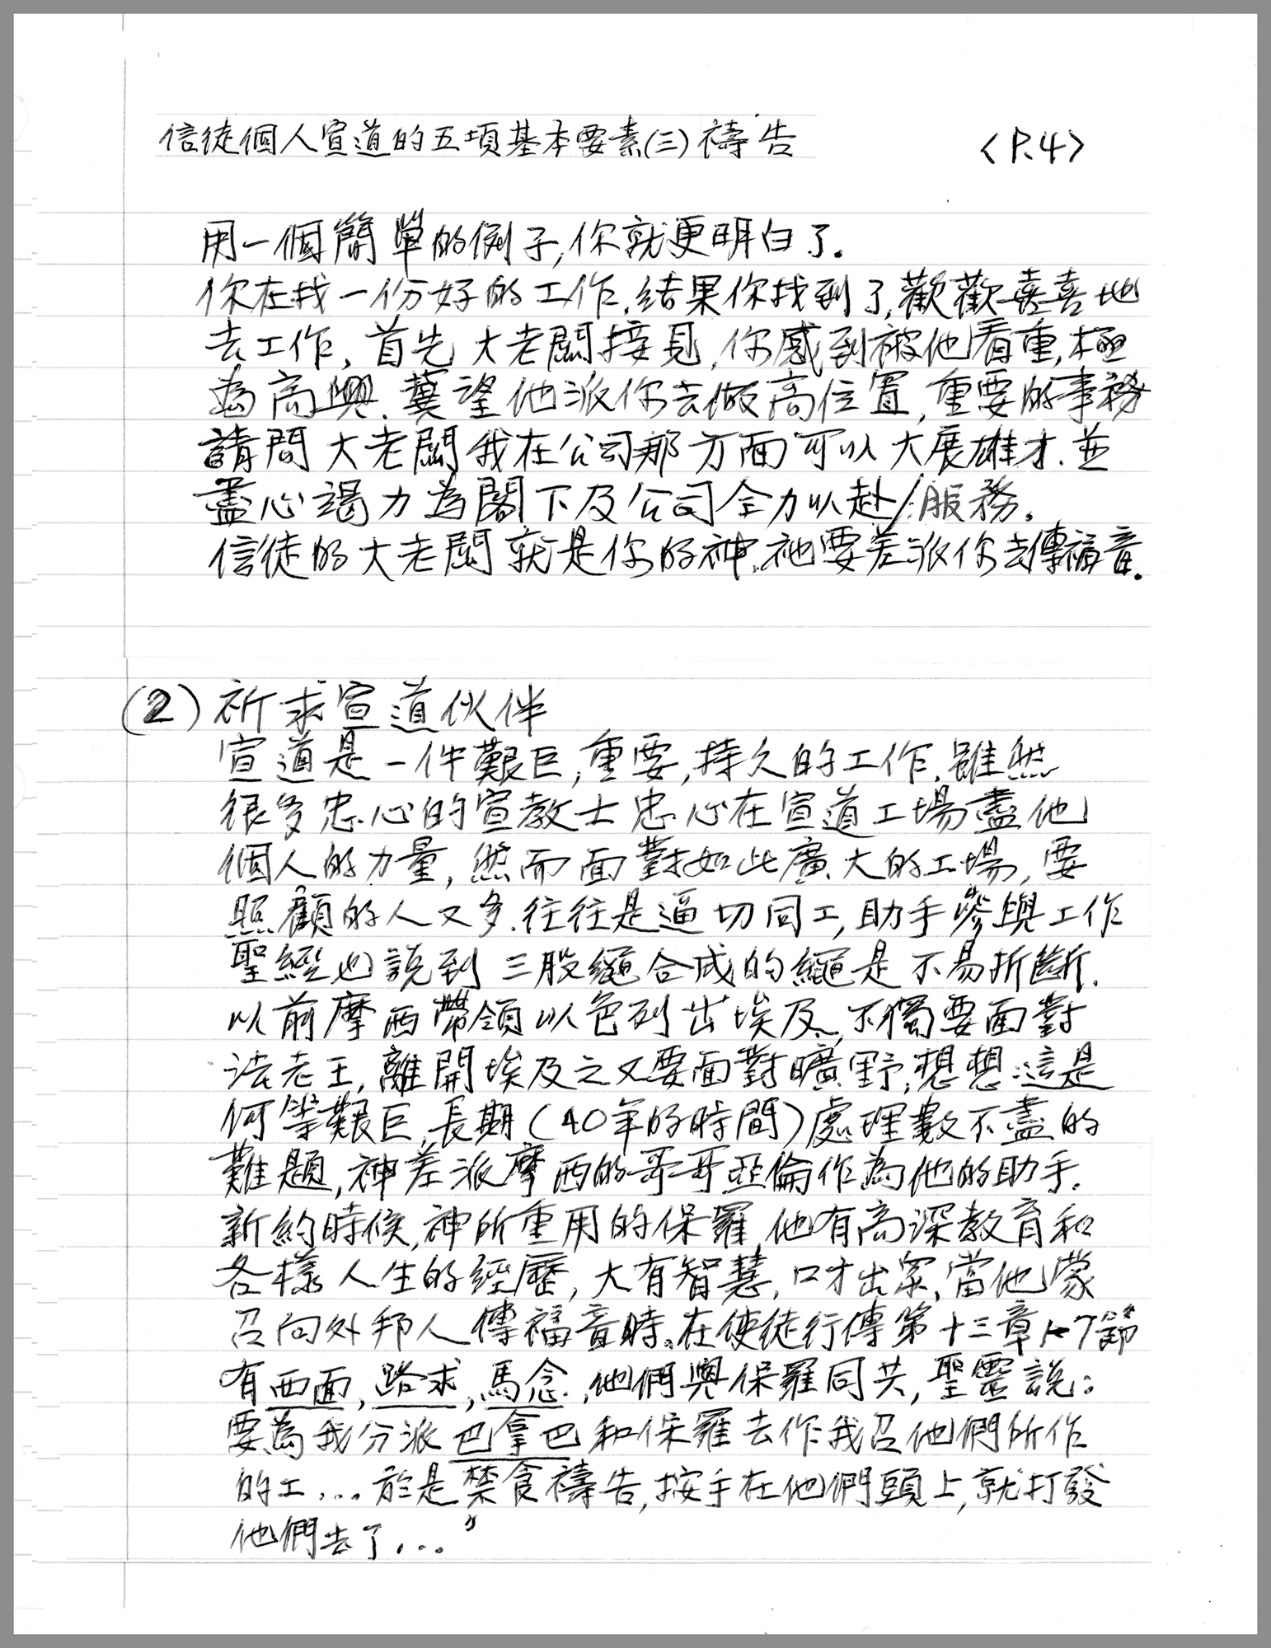 信徒個人宣道的五項基本要素(三)禱告 <P.4>
用一個簡單的例子,你就更明白了.
你在找一份好的工作.結果你找到了,歡歡喜喜地
去工作,首先大老闆接見,你感到被他看重,極
為高興.冀望他派你去做高位置,重要的事務
請問大老闆我在公司那方面可以大展雄才.並
盡心竭力為閣下及公司全力以赴/服務.
信徒的大老闆就是你的神.祂要差派你去傳福音.
(2)祈求宣道伙伴
宣道是一件艱巨,重要,持久的工作.雖然
很多忠心的宣教士忠心在宣道工場盡他
個人的力量,然而面對如此廣大的工場,要
照顧的人又多.往往是逼切同工,助手參與工作
聖經也說到三股繩合成的繩是不易折斷.
以前摩西帶領以色列出埃及,不獨要面對
法老王,離開埃及之又要面對曠野,想想這是
何等艱巨,長期(40年的時間)處理數不盡的
難題,神差派摩西的哥哥亞倫作為他的助手.
新約時候,神所重用的保羅,他有高深教育和
各樣人生的經歷,大有智慧,口才出眾,當他蒙
召向外邦人傳福音時.在使徒行傳第十三章1-7節
有西面,路求,馬念,他們與保羅同共,聖靈說:
要為我分派巴拿巴和保羅去作我召他們所作
的工...於是禁食禱告,按手在他們頭上,就打發
他們去了..."